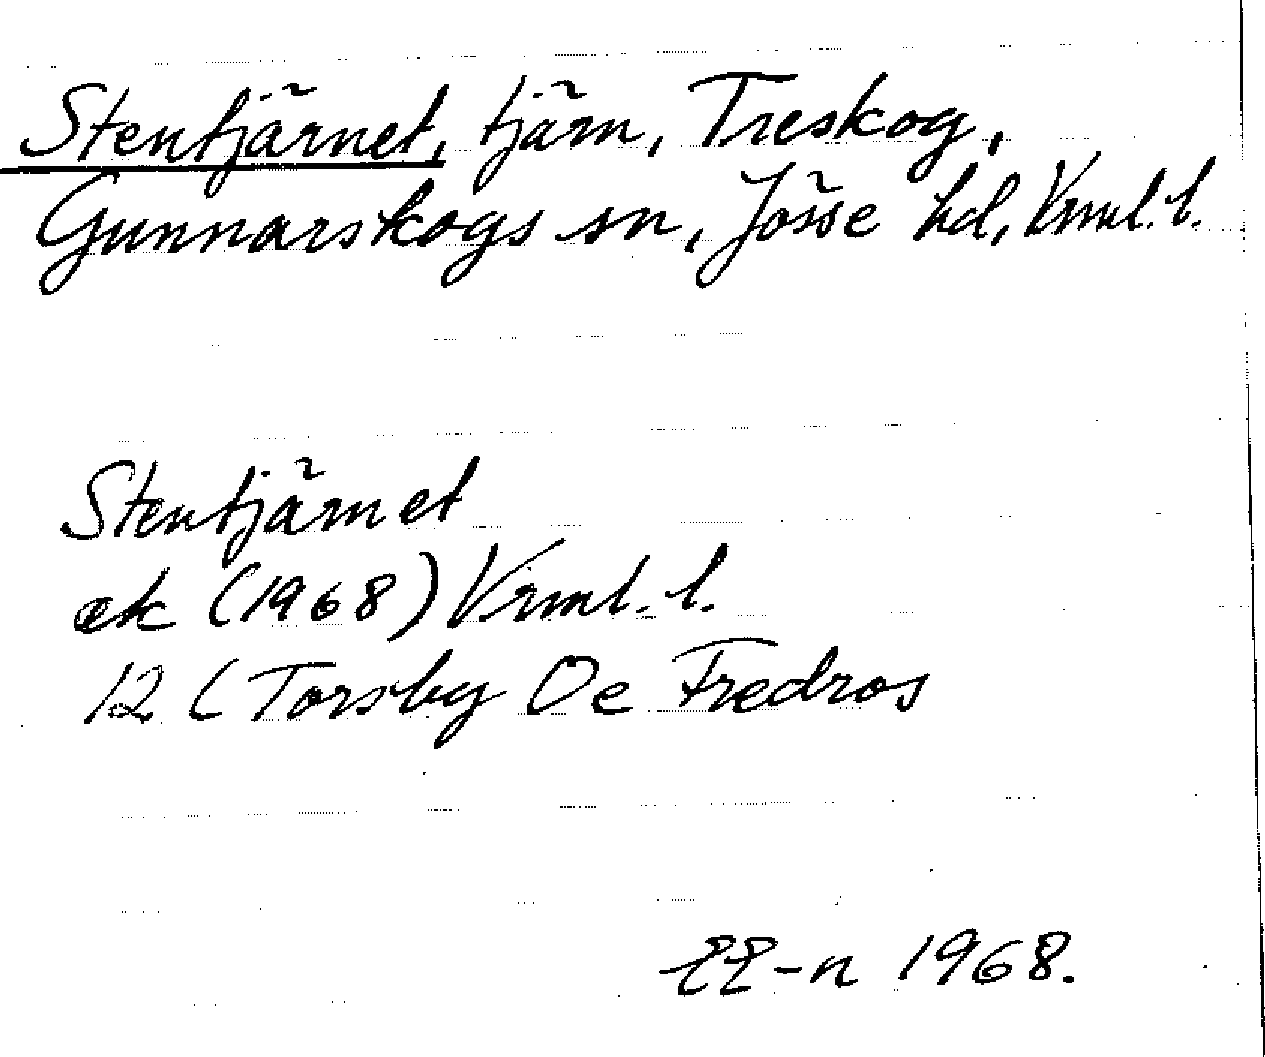 Stentjärnet, tjärn, Treskog,
Gunnarskogs sn, Jösse hd, Vrml. l.
Stentjärnet
ek (1968) Vrml. l.
12 C Torsby Öe Fredros
EE-n 1968.